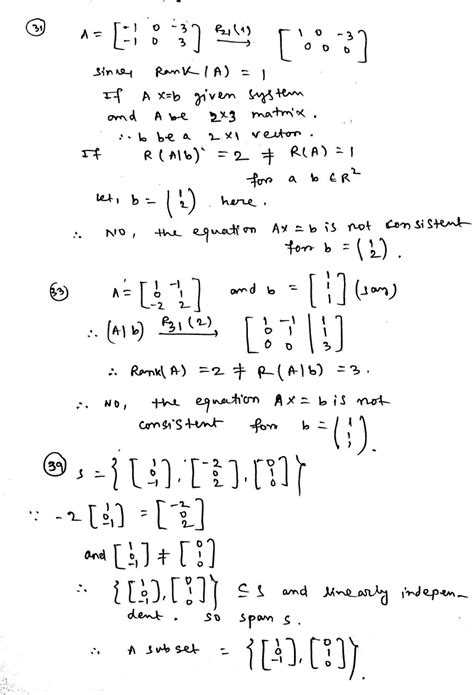 (31) A = [-1 0 -3; -1 0 3] R21(1) → [1 0 -3; 0 0 0]
Since, Rank(A) = 1
If Ax=b given system
and A be 2x3 matrix.
∴ b be a 2x1 vector.
If R(A|b) = 2 ≠ R(A) = 1
for a b ∈ R²
let, b = (1; 2) here.
∴ NO, the equation Ax = b is not consistent
for b = (1; 2).
(33) A = [1 -1; 0 1; -2 2] and b = [1; 1; 1] (say)
∴ (A|b) R31(2) → [1 -1 | 1; 0 1 | 1; 0 0 | 3]
∴ Rank(A) = 2 ≠ R(A|b) = 3.
∴ NO, the equation Ax = b is not
consistent for b = (1; 1; 1).
(39) S = {[1; 0; -1], [-2; 0; 2], [0; 1; 0]}
∵ -2 [1; 0; -1] = [-2; 0; 2]
and [1; 0; -1] ≠ [0; 1; 0]
∴ {[1; 0; -1], [0; 1; 0]} ⊆ S and linearly indepen-
dent. so span S.
∴ A subset = {[1; 0; -1], [0; 1; 0]}.